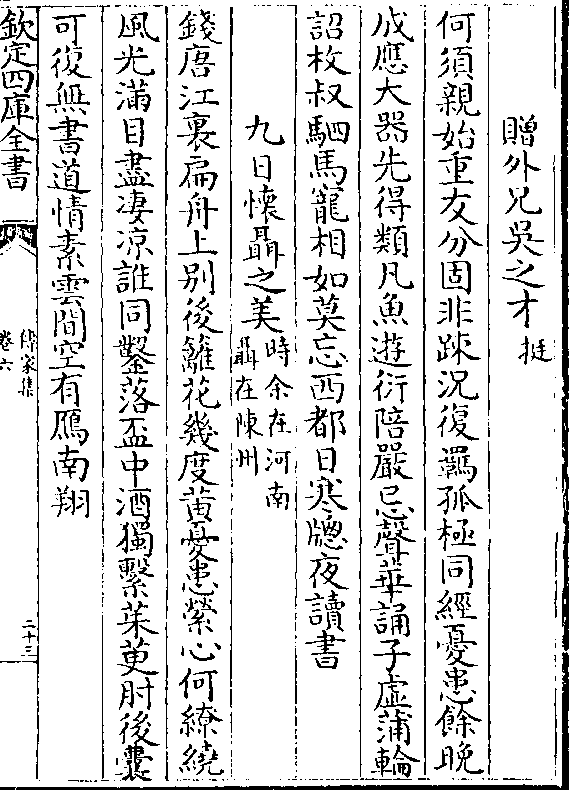 贈外兄吳之才挺
何須親始重友分固非踈況復羈孤極同經憂患餘晚
成應大器先得類凡魚遊衍陪嚴忌聲華誦子虛蒲輪
詔枚叔駟馬寵相如莫忘西都日寒牕夜讀書
九日懷聶之美時余在河南聶在陳州
錢唐江裏扁舟上别後籬花幾度黄憂患縈心何繚繞
風光滿目盡凄凉誰同鑿落盃中酒獨繫茱萸肘後囊
可復無書道情素雲間空有鴈南翔
欽定四庫全書
傳家集
卷六
二十三